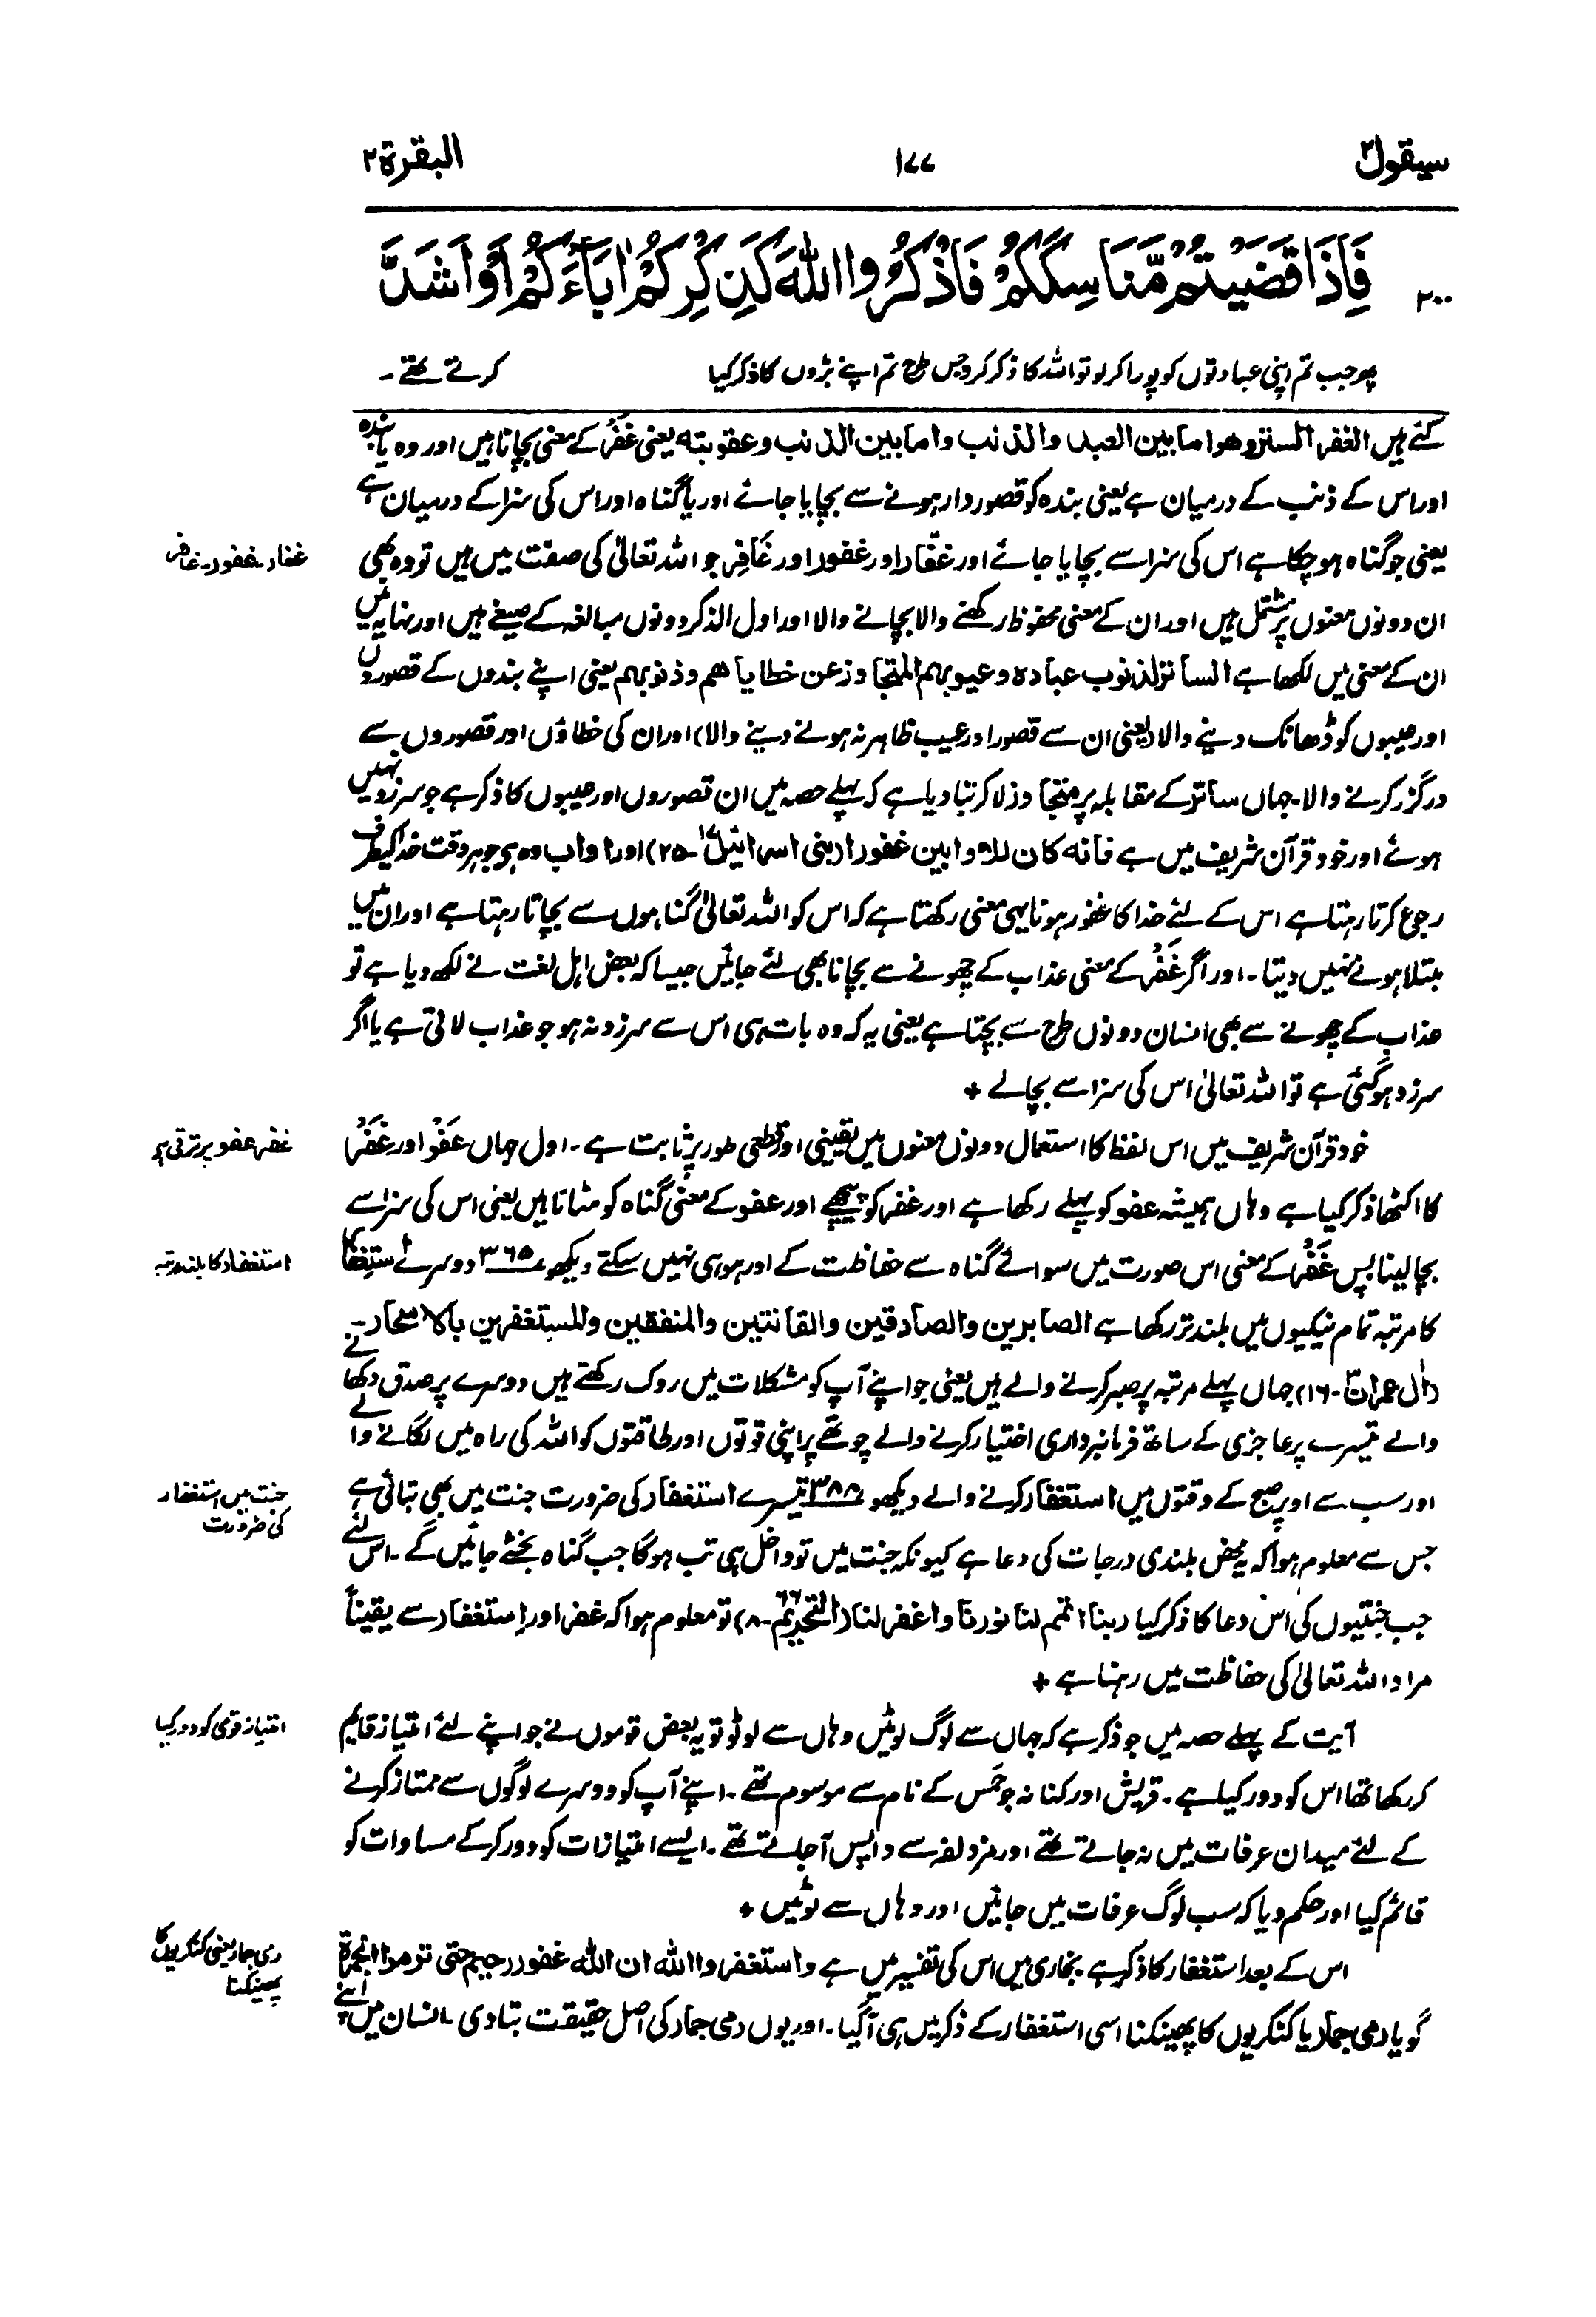 سیقول۲
۱۷۷
البقرة۲
۲۰۰
فَاِذَا قَضَیْتُمْ مَّنَاسِکَکُمْ فَاذْکُرُوا اللّٰهَ کَذِکْرِکُمْ اٰبَآءَکُمْ اَوْ اَشَدَّ
پھر جب تم اپنی عبادتوں کو پورا کر لو تو اللہ کا ذکر کرو جس طرح تم اپنے بڑوں کا ذکر کیا کرتے تھے۔
گئے ہیں الغفر الستر وھو اما بین العبد والذنب واما بین الذنب وعقوبته یعنی غَفْر کے معنی بچانا ہیں اور وہ یا بندہ
اور اس کے ذنب کے درمیان ہے یعنی بندہ کو قصور دار ہونے سے بچایا جائے اور یا گناہ اور اس کی سزا کے درمیان ہے
یعنی جو گناہ ہو چکا ہے اس کی سزا سے بچایا جائے اور غفّار اور غفور اور غَافِر جو اللہ تعالیٰ کی صفت میں ہیں تو وہ بھی
غفار۔غفور۔غافر
ان دونوں معنوں پر مشتمل ہیں اور ان کے معنی محفوظ رکھنے والا بچانے والا اور اول الذکر دونوں مبالغہ کے صیغے ہیں اور نہایہ میں
ان کے معنی میں لکھا ہے الساتر لذنوب عبادہ وعیوبہم المتجاوز عن خطایاھم وذنوبہم یعنی اپنے بندوں کے قصوروں
اور عیبوں کو ڈھانک دینے والا (یعنی ان سے قصور اور عیب ظاہر نہ ہونے دینے والا) اور ان کی خطاؤں اور قصوروں سے
درگزر کرنے والا۔ جہاں ساتر کے مقابلہ پر متجاوز لا کر بتا دیا ہے کہ پہلے حصہ میں ان قصوروں اور عیبوں کا ذکر ہے جو سرزد نہیں
ہوئے اور خود قرآن شریف میں ہے فانه کان للاوابین غفورا (بنی اسرائیل۱۷۔۲۵) اور اواب وہ ہی جو ہر وقت خدا کیطرف
رجوع کرتا رہتا ہے اس کے لئے خدا کا غفور ہونا یہی معنی رکھتا ہے کہ اس کو اللہ تعالیٰ گناہوں سے بچاتا رہتا ہے اور ان میں
مبتلا ہونے نہیں دیتا۔ اور اگر غَفْر کے معنی عذاب کے چھونے سے بچانا بھی لئے جائیں جیسا کہ بعض اہل لغت نے لکھ دیا ہے تو
عذاب کے چھونے سے بھی انسان دونوں طرح سے بچتا ہے یعنی یہ کہ وہ بات ہی اس سے سرزد نہ ہو جو عذاب لاتی ہے یا اگر
سرزد ہو گئی ہے تو اللہ تعالیٰ اس کی سزا سے بچالے +
خود قرآن شریف میں اس لفظ کا استعمال دونوں معنوں میں یقینی اور قطعی طور پر ثابت ہے۔ اول جہاں عَفْو اور غَفْر
غفر عفو پر ترقی ہے
کا اکٹھا ذکر کیا ہے وہاں ہمیشہ عفو کو پہلے رکھا ہے اور غفر کو پیچھے اور عفو کے معنی گناہ کو مٹانا ہیں یعنی اس کی سزا سے
بچا لینا پس غَفْر کے معنی اس صورت میں سوائے گناہ سے حفاظت کے اور ہو ہی نہیں سکتے دیکھو ۳۶۵ دوسرے اِستِغفار کا
استغفار کا بلند مرتبہ
کا مرتبہ تمام نیکیوں میں بلند تر رکھا ہے الصابرین والصادقین والقانتین والمنفقین والمستغفرین بالاسحار۔
(اٰل عمران۳۔۱۶) جہاں پہلے مرتبہ پر صبر کرنے والے ہیں یعنی جو اپنے آپ کو مشکلات میں روک رکھتے ہیں دوسرے پر صدق دکھانے
والے تیسرے پر عاجزی کے ساتھ فرمانبرداری اختیار کرنے والے چوتھے پر اپنی قوتوں اور طاقتوں کو اللہ کی راہ میں لگانے والے
اور سب سے اوپر صبح کے وقتوں میں استغفار کرنے والے دیکھو ۳۸۸ تیسرے استغفار کی ضرورت جنت میں بھی بتائی ہے
جنت میں استغفار
کی ضرورت
جس سے معلوم ہوا کہ یہ محض بلندی درجات کی دعا ہے کیونکہ جنت میں تو داخل ہی تب ہوگا جب گناہ بخشے جائیں گے۔ اس لئے
جب جنتیوں کی اس دعا کا ذکر کیا ربنا اتمم لنا نورنا واغفر لنا (التحریم۶۶۔۸) تو معلوم ہوا کہ غفر اور اِستغفار سے یقیناً
مراد اللہ تعالیٰ کی حفاظت میں رہنا ہے +
آیت کے پہلے حصہ میں جو ذکر ہے کہ جہاں سے لوگ لوٹیں وہاں سے لوٹو تو یہ بعض قوموں نے جو اپنے لئے امتیاز قایم
امتیاز قومی کو دور کیا
کر رکھا تھا اس کو دور کیا ہے۔ قریش اور کنانہ جو حُمس کے نام سے موسوم تھے۔ اپنے آپ کو دوسرے لوگوں سے ممتاز کرنے
کے لئے میدان عرفات میں نہ جاتے تھے اور مزدلفہ سے واپس آجاتے تھے۔ ایسے امتیازات کو دور کرکے مساوات کو
قائم کیا اور حکم دیا کہ سب لوگ عرفات میں جائیں اور وہاں سے لوٹیں +
اس کے بعد استغفار کا ذکر ہے بخاری میں اس کی تفسیر میں ہے واستغفروا اللّٰه ان اللّٰه غفور رحیم حتی ترموا الجمرة
رمی جمار یعنی کنکریوں کا
پھینکنا
گویا رمی جمار یا کنکریوں کا پھینکنا اسی استغفار کے ذکر میں ہی آگیا۔ اور یوں رمی جمار کی اصل حقیقت بتادی۔ انسان میں اپنے